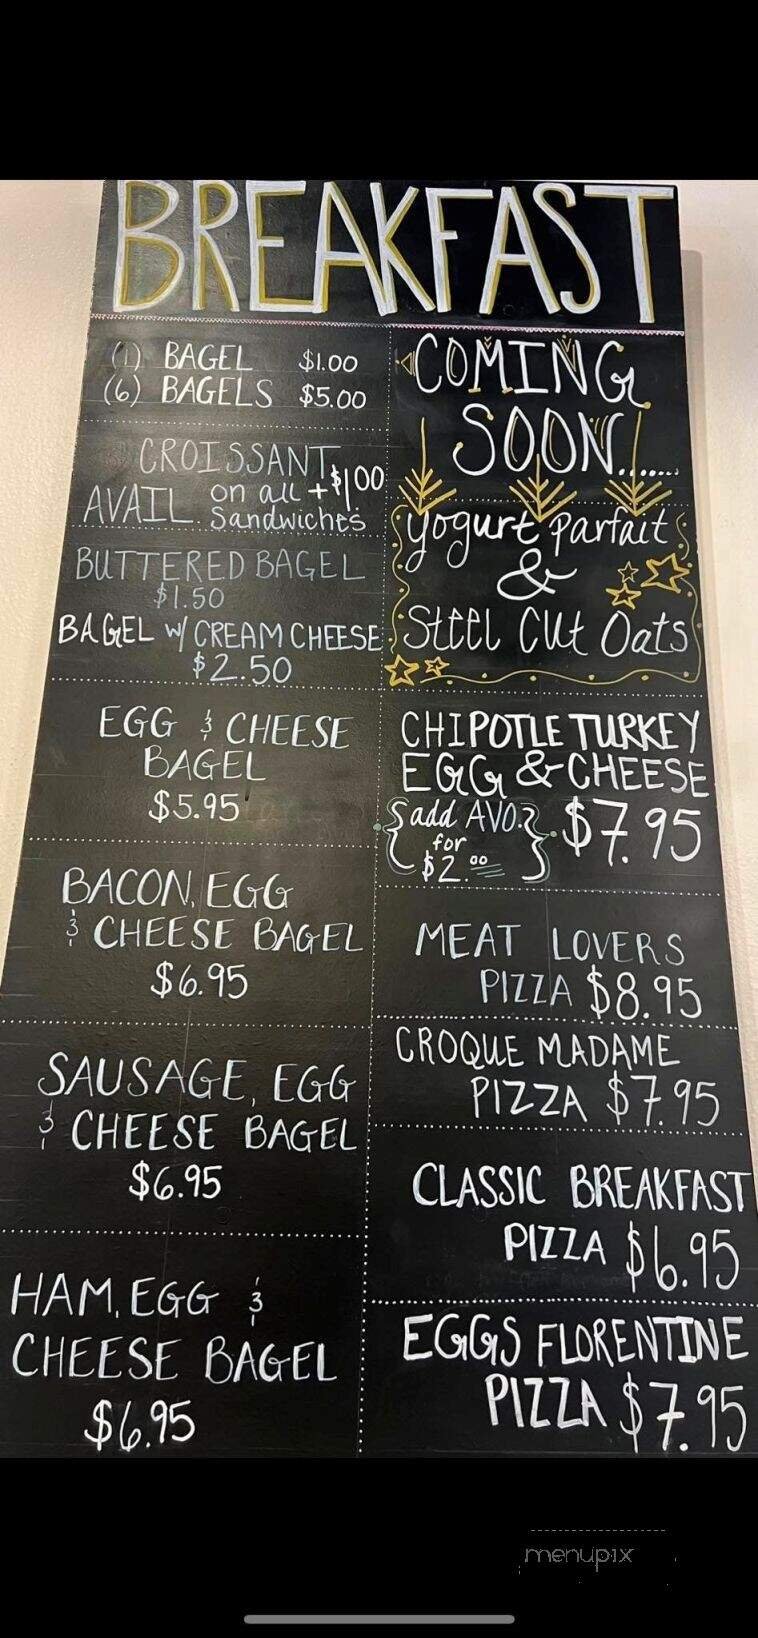 BREAKFAST
(1) BAGEL $1.00
(6) BAGELS $5.00
CROISSANT
AVAIL. on all + $1.00
Sandwiches
BUTTERED BAGEL
$1.50
BAGEL W/ CREAM CHEESE
$2.50
EGG & CHEESE
BAGEL
$5.95
BACON, EGG
& CHEESE BAGEL
$6.95
SAUSAGE, EGG
& CHEESE BAGEL
$6.95
HAM, EGG &
CHEESE BAGEL
$6.95
COMING
SOON.......
Yogurt Parfait
&
Steel Cut Oats
CHIPOTLE TURKEY
EGG & CHEESE
{add AVO. for $2.00} $7.95
MEAT LOVERS
PIZZA $8.95
CROQUE MADAME
PIZZA $7.95
CLASSIC BREAKFAST
PIZZA $6.95
EGGS FLORENTINE
PIZZA $7.95
menupix